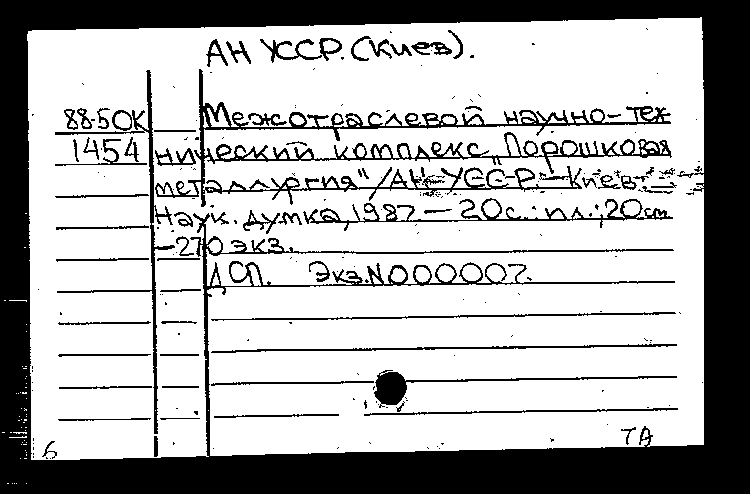 АН УССР. (Киев).
88-5ОК Межотраслевой научно-тех-
1454 нический комплекс „Порошковая
металлургия" /АН УССР — Киев:
Наук. думка, 1987 — 20с.: ил.; 20 см
— 270 экз.
ДСП. Экз.N000007.
6 ТА